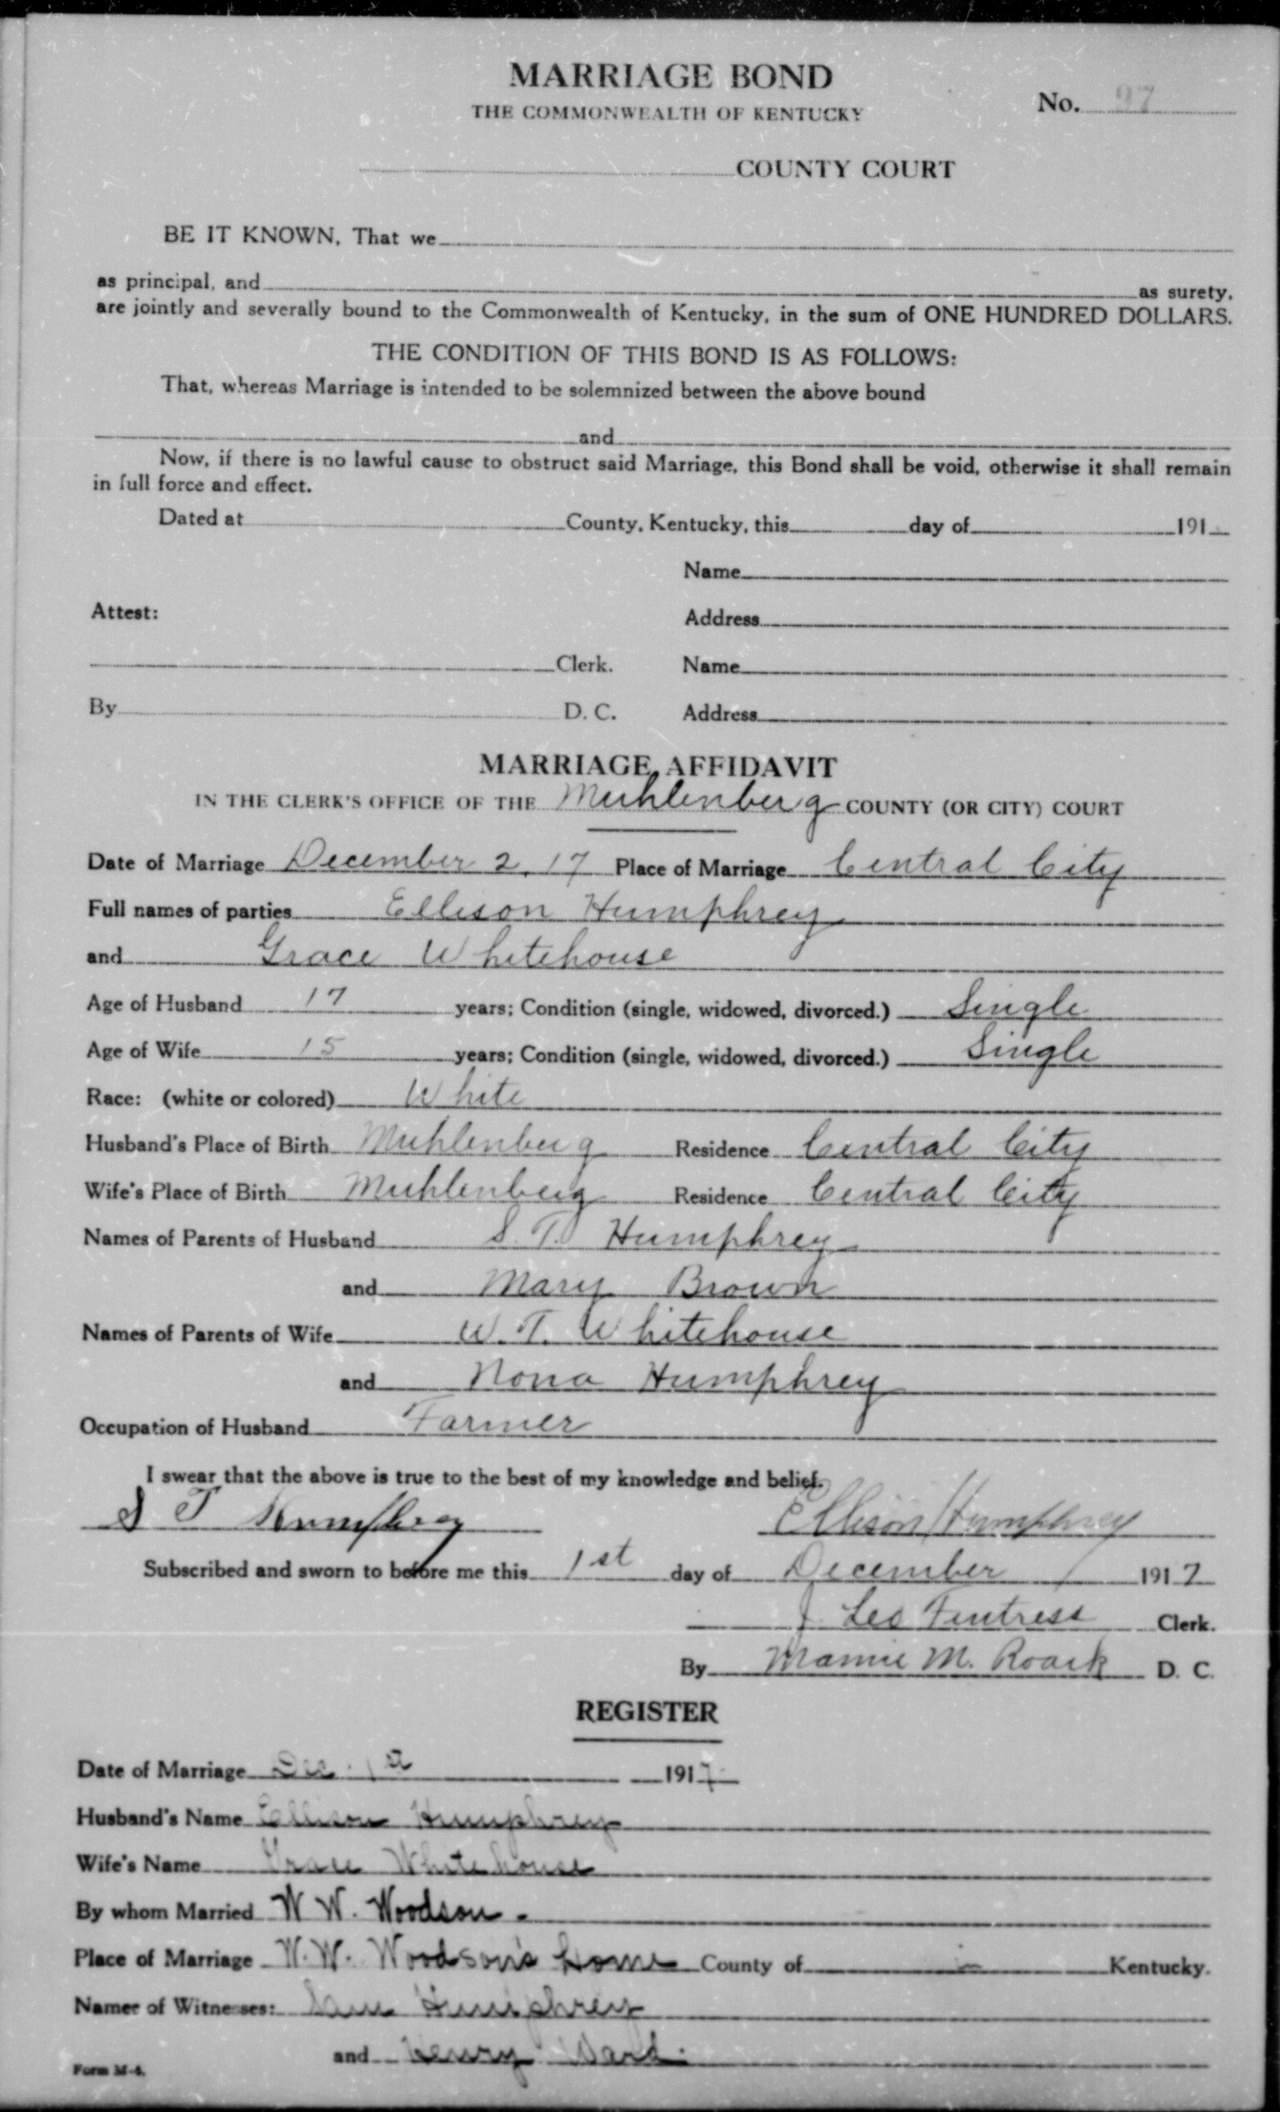 MARRIAGE BOND
THE COMMONWEALTH OF KENTUCKY
No. 97
COUNTY COURT
BE IT KNOWN, That we
as principal, and as surety,
are jointly and severally bound to the Commonwealth of Kentucky, in the sum of ONE HUNDRED DOLLARS.
THE CONDITION OF THIS BOND IS AS FOLLOWS:
That, whereas Marriage is intended to be solemnized between the above bound
and
Now, if there is no lawful cause to obstruct said Marriage, this Bond shall be void, otherwise it shall remain
in full force and effect.
Dated at County, Kentucky, this day of 191
Name
Attest: Address
Clerk. Name
By D. C. Address
MARRIAGE AFFIDAVIT
IN THE CLERK'S OFFICE OF THE Muhlenberg COUNTY (OR CITY) COURT
Date of Marriage December 2, 17 Place of Marriage Central City
Full names of parties Ellison Humphrey
and Grace Whitehouse
Age of Husband 17 years; Condition (single, widowed, divorced.) Single
Age of Wife 15 years; Condition (single, widowed, divorced.) Single
Race: (white or colored) White
Husband's Place of Birth Muhlenberg Residence Central City
Wife's Place of Birth Muhlenberg Residence Central City
Names of Parents of Husband S. T. Humphrey
and Mary Brown
Names of Parents of Wife W. T. Whitehouse
and Nona Humphrey
Occupation of Husband Farmer
I swear that the above is true to the best of my knowledge and belief.
S T Humphrey Ellison Humphrey
Subscribed and sworn to before me this 1st day of December 1917
J. Leo Fentress Clerk.
By Mamie M. Roark D. C.
REGISTER
Date of Marriage Dec. 1st 1917
Husband's Name Ellison Humphrey
Wife's Name Grace Whitehouse
By whom Married W W. Woodson.
Place of Marriage W. W. Woodson's home County of in Kentucky.
Names of Witnesses: Sam Humphrey
and Henry Ward.
Form M-4.